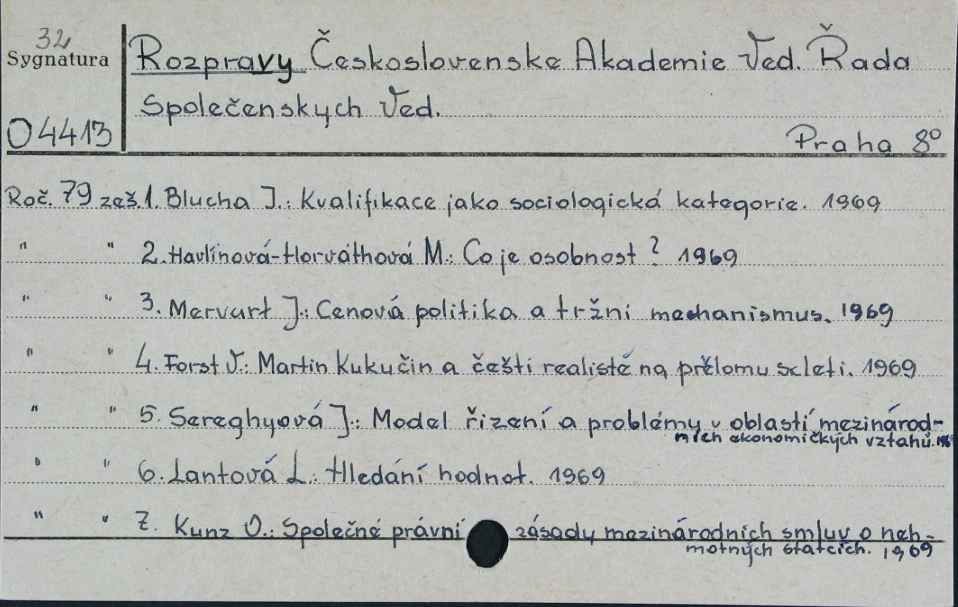 32
Sygnatura
O 4413
Rozpravy Československe Akademie Ved. Řada
Společenskych Ved.
Praha 8°
Roč. 79 zeš. 1. Blucha J.: Kvalifikace jako sociologická kategorie. 1969
" " 2. Havlínová-Horváthová M.: Co je osobnost? 1969
" " 3. Mervart J.: Cenová politika a tržni mechanismus. 1969
" " 4. Forst V.: Martin Kukučin a čeští realisté na přělomu scleti. 1969
" " 5. Sereghyová J.: Model řízení a problémy v oblastí mezinárod-
ních ekonomičkych vztahů. 1969
" " 6. Lantová L.: Hledání hodnot. 1969
" " 7. Kunz O.: Společné právní zásady mezinárodních smluv o neh-
motných statcích. 1969